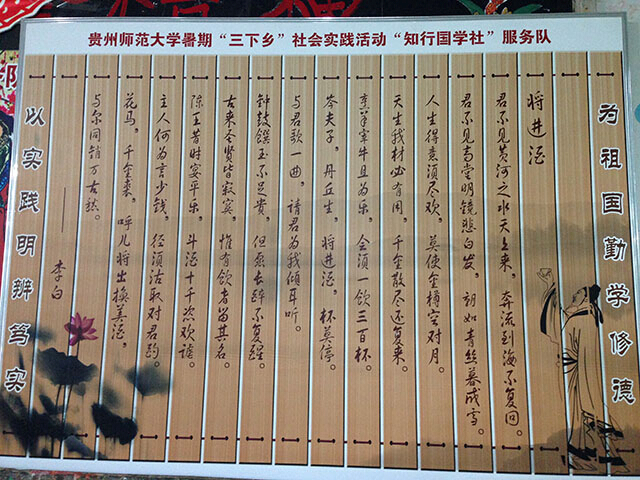 贵州师范大学暑期“三下乡”社会实践活动“知行国学社”服务队
为祖国勤学修德
将进酒
君不见黄河之水天上来，奔流到海不复回。
君不见高堂明镜悲白发，朝如青丝暮成雪。
人生得意须尽欢，莫使金樽空对月。
天生我材必有用，千金散尽还复来。
烹羊宰牛且为乐，会须一饮三百杯。
岑夫子，丹丘生，将进酒，杯莫停。
与君歌一曲，请君为我倾耳听。
钟鼓馔玉不足贵，但愿长醉不复醒。
古来圣贤皆寂寞，惟有饮者留其名。
陈王昔时宴平乐，斗酒十千恣欢谑。
主人何为言少钱，径须沽取对君酌。
花马，千金裘，呼儿将出换美酒，
与尔同销万古愁。
——李白
以实践明辨笃实